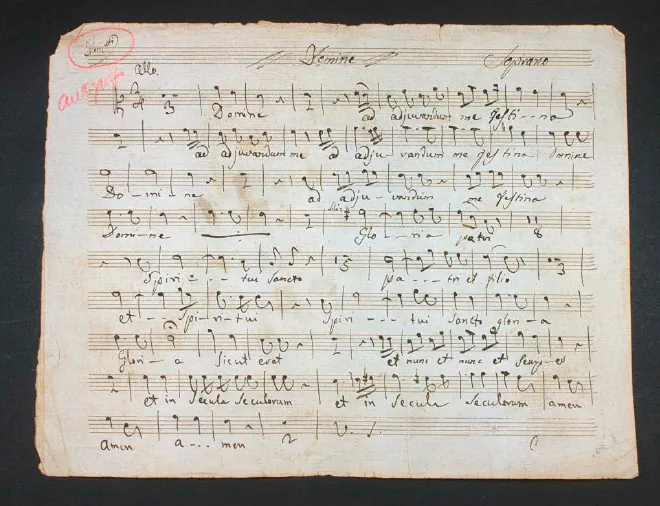 Domine Soprano
Allo.
Domine ad adjuvandum me festi - - na
ad adjuvandum me ad adju - vandum me festina Domine
Do - mi - ne ad adju - vandum me festina
Domi - ne Glo - ria patri 8
Spiri - - - tui Sancto pa - - - tri et filio
et - - - Spi - ri - tui Spiri - - - tui Sancto glori - a
Glori - a Sicut erat et nunc et nunc et Semp - er
et in Secula Seculorum et in Secula Seculorum amen
Amen a - - - men V. S.